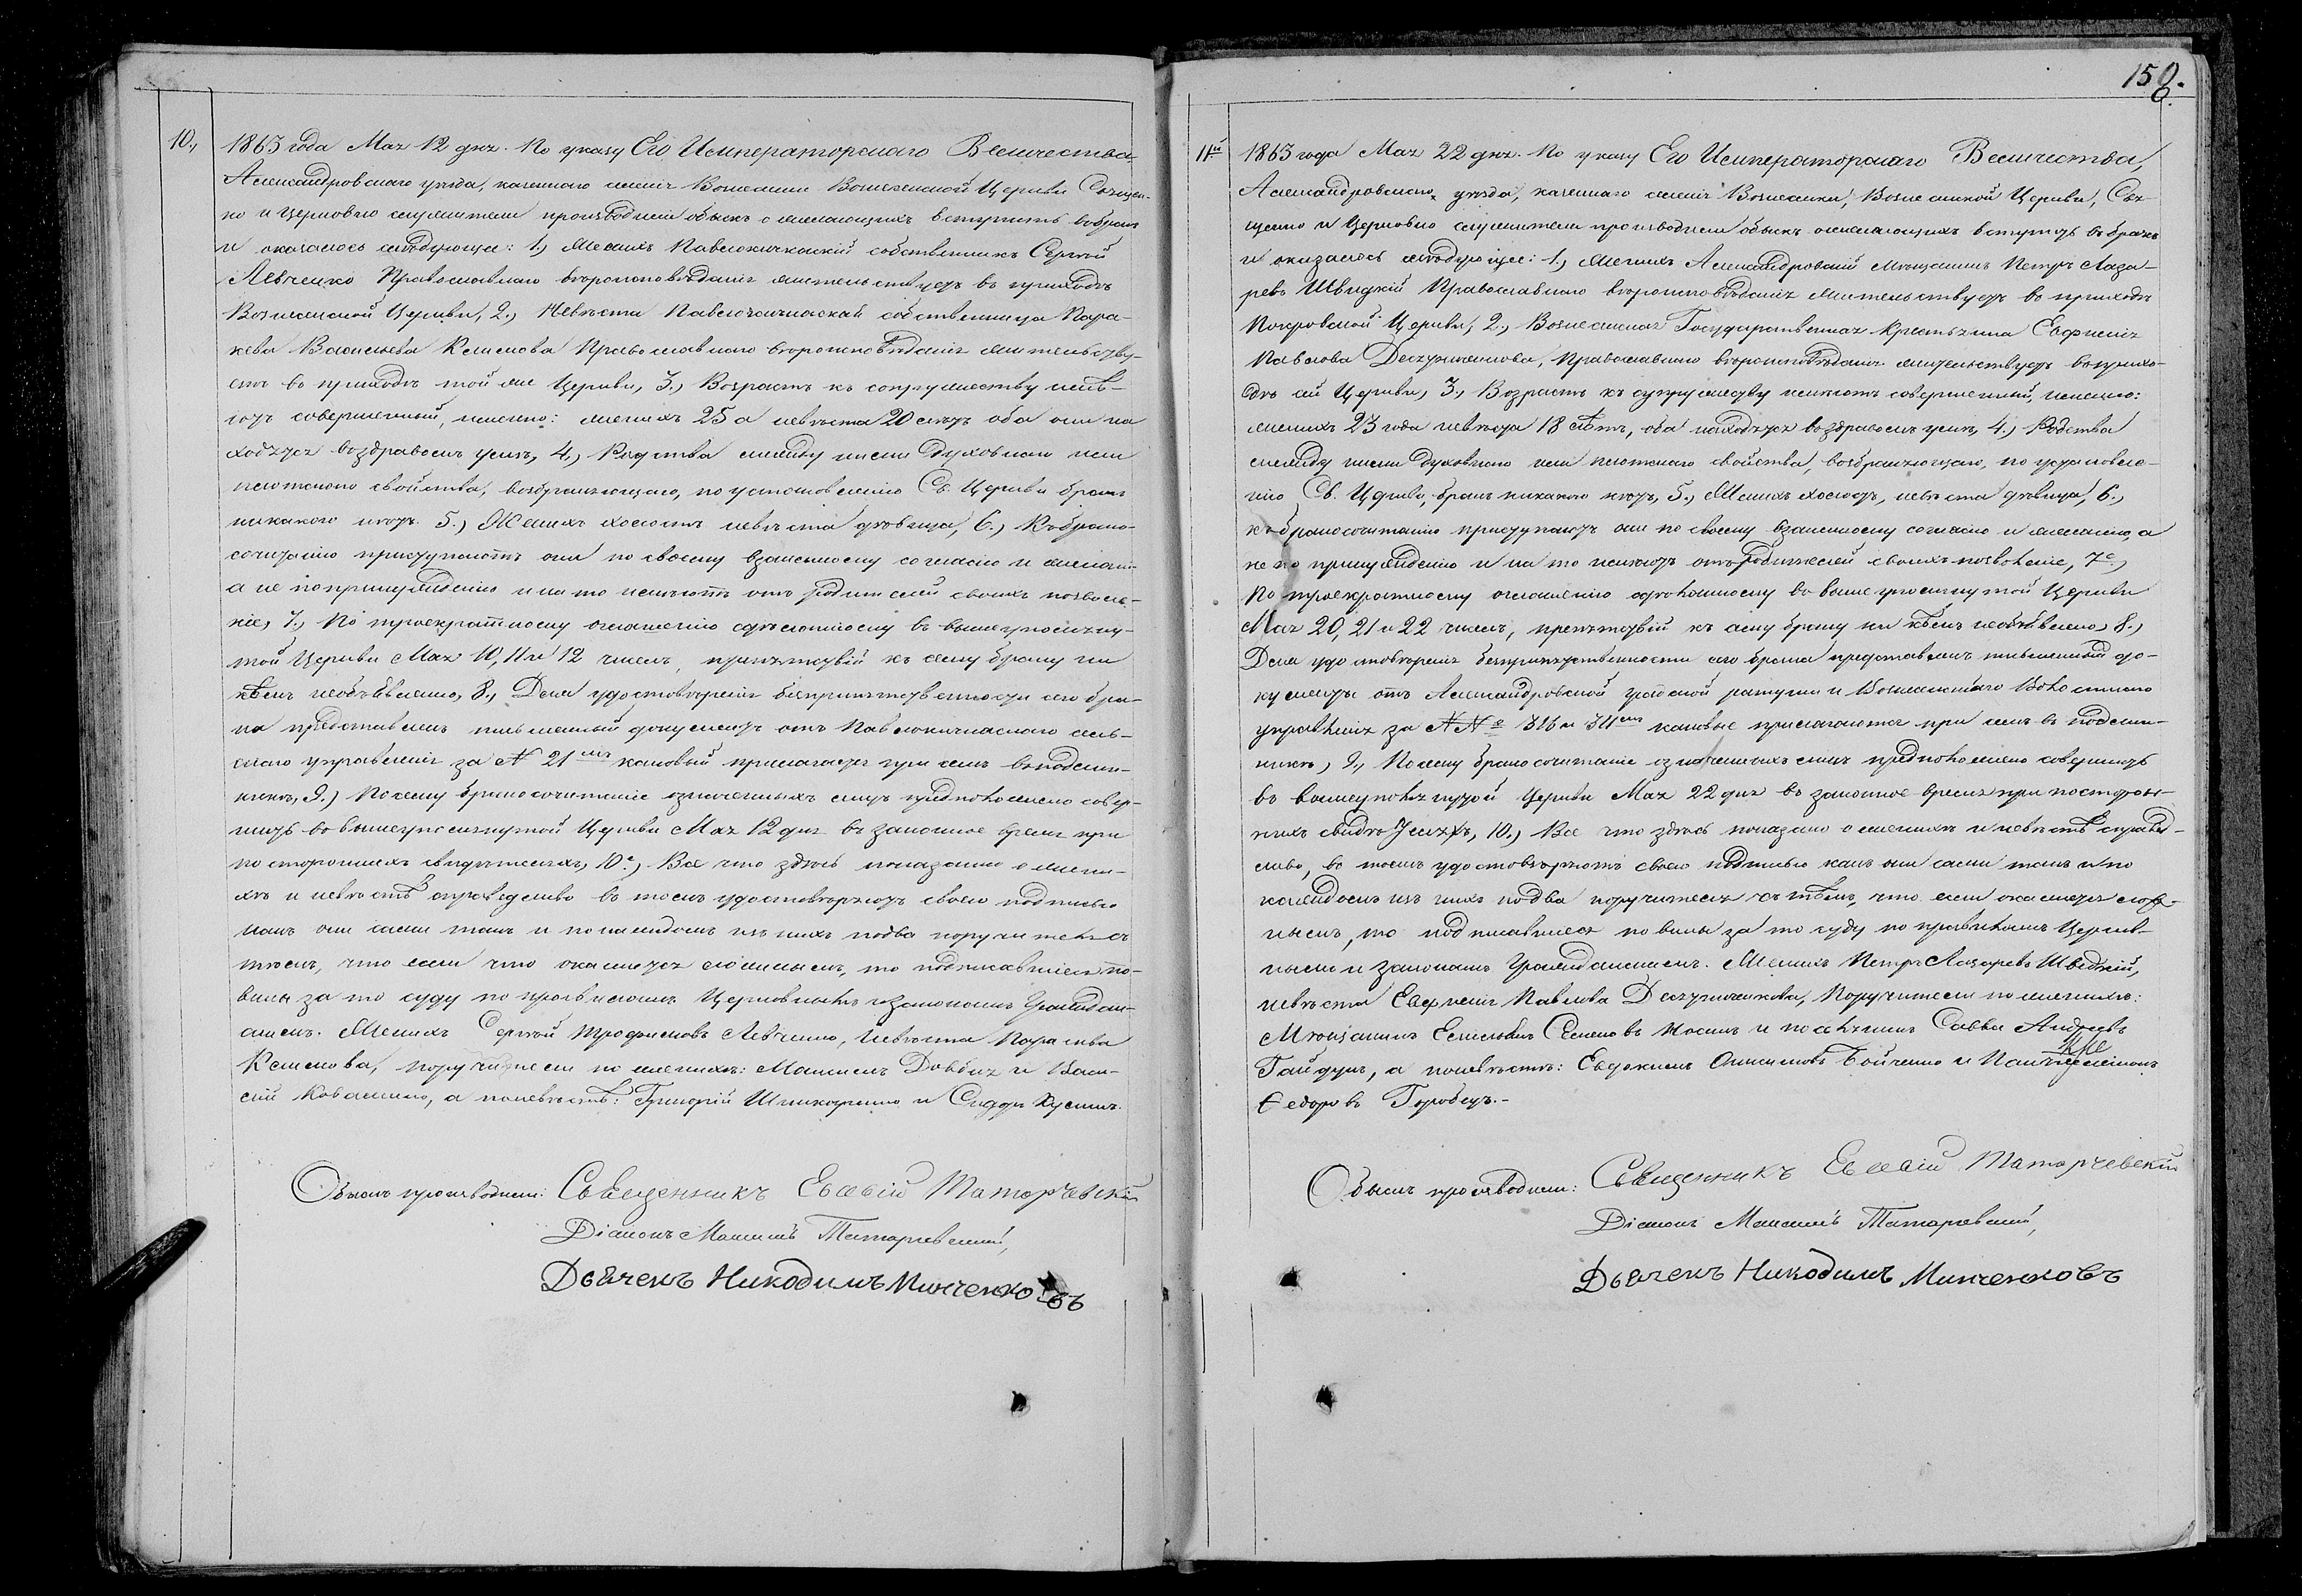 10., 1863 года Мая 12 дня. По указу Его Императорскаго Величества
Александровскаго уѣзда, казеннаго селенія Вознесенки Вознесенской Церкви Священ-
но и Церковно служители производили обыскъ о желающихъ вступить вобракъ
и оказалось слѣдующее: 1.) Женихъ Павлокичкаскій собственникъ Сергѣй
Левченко Православнаго вѣроисповѣданія жительствуетъ въ приходѣ
Вознесенской Церкви, 2.) Невѣста Павлокичкаская собственница Пара-
кева Васильева Климова Православнаго вѣроисповѣданія жительству-
етъ въ приходѣ той же Церкви, 3.) Возрастъ къ сопружеству имѣ-
ютъ совершенный, именно: женихъ 25 а невѣста 20 лѣтъ оба они на
ходятся воздравомъ умѣ, 4.) Родства между ними Духовнаго или
плотскаго свойства, возбраняющаго, по установленію Св. Церкви бракъ
никакого нѣтъ. 5.) Женихъ холостъ невѣста дѣвица, 6.) Къ брако-
сочитанію приступаютъ они по своему взаимному согласію и желанію
а не попринужденію и на то имѣютъ отъ Родителей своихъ позволе-
ніе, 7.) По троекратному оглашенію сдѣланному въ вышеупомяну-
той Церкви Мая 10, 11 и 12 чиселъ, препятствій къ сему браку ни
кѣмъ необъявлено, 8.) Для удостовѣренія безпрепятственности сего бра-
ка представленъ письменный документъ отъ Павлокичкаскаго сель-
скаго управленія за № 21мъ каковый прилагается при семъ въ подлин-
никѣ, 9.) Посему бракосочитаніе означенныхъ лицъ предположено совер-
шить въ вышеупомянутой Церкви Мая 12 дня въ законное время при
постороннихъ свидѣтеляхъ, 10е.) Все что здѣсь показано о жени-
хѣ и невѣстѣ справедливо въ томъ удостовѣряютъ своею подписью
какъ они сами такъ и по каждомъ изъ нихъ подва поручителя съ
тѣмъ, что если что окажется ложнымъ, то подписавшіеся по-
винны за то суду по правиламъ Церковнымъ и законамъ Граждан-
скимъ. Женихъ Сергѣй Трофимовъ Левченко, Невѣста Параскева
Климова, поручители по женихѣ: Максимъ Довбня и Васи-
лій Коваленко, а поневѣстѣ: Григорій Шпикаренко и Сидоръ Кушмъ.
Обыскъ производили: Священникъ Евсевій Татарчевскій
Діаконъ Максимъ Татарчевскій,
Дьячекъ Никодимъ Минченковъ
150.
11й 1863 года Мая 22 дня. По указу Его Императорскаго Величества,
Александровскаго уѣзда, казеннаго селенія Вознесенки, Вознесенской Церкви, Свя-
щенно и Церковно служители производили обыскъ о желающихъ вступить въ бракъ
и оказалось слѣдующее: 1.) Женихъ Александровскій Мѣщанинъ Петръ Лаза-
ревъ Швидкій Православнаго вѣроисповѣданія жительствуетъ въ приходѣ
Покровской Церкви, 2.) Вознесенская Государственная Крестьянка Евфимія
Павлова Православнаго вѣроисповѣданія жительствуетъ въ прихо-
дѣ сей Церкви, 3.) Возрастъ къ супружеству имѣютъ совершенный, именно:
женихъ 23 года невѣста 18 лѣтъ, оба находятся воздравомъ умѣ, 4.) Родства
между ними Духовнаго или плотскаго свойства, возбраняющаго, по установле-
нію Св. Церкви, бракъ никакого нѣтъ, 5.) Женихъ холостъ, невѣста дѣвица, 6.)
къ бракосочитанію приступаютъ они по своему взаимному согласію и желанію, а
не по принужденію и на то имѣютъ отъ Родителей своихъ позволеніе, 7е.)
По троекратному оглашенію сдѣланному въ вышеупомянутой Церкви
Мая 20, 21 и 22 чиселъ, препятствій къ сему браку ни кѣмъ необъявлено, 8.)
Для удостовѣренія безпрепятственности сего брака представленъ письменный до-
кументъ отъ Александровской градской ратуши и Вознесенскаго Волостнаго
управленія за №№ 316 и 311мъ каковые прилагаются при семъ въ подлин-
никѣ, 9.) Посему бракосочитаніе означенныхъ лицъ предположено совершить
въ вышеупомянутой Церкви Мая 22 дня въ законное время при посторон-
нихъ свидѣтеляхъ, 10.) Все что здѣсь показано о женихѣ и невѣстѣ справед-
ливо, въ томъ удостовѣряютъ своею подписью какъ они сами такъ и по
каждомъ изъ нихъ подва поручителя съ тѣмъ, что если окажется лож-
нымъ, то подписавшіеся повинны за то суду по правиламъ Церков-
нымъ и законамъ Гражданскимъ. Женихъ Петръ Лазаревъ Швидкій,
невѣста Евфимія Павлова Поручители по женихѣ:
Мѣщанинъ Емельянъ Семеновъ Носикъ и поселянинъ Савва Андреевъ
Гайдукъ, а поневѣстѣ: Евдокимъ Анисимовъ Бойченко и Пантелеимонъ
Ѳедоровъ Горобецъ.-
Обыскъ производили: Священникъ Евсевій Татарчевскій
Діаконъ Максимъ Татарчевскій,
Дьячекъ Никодимъ Минченковъ